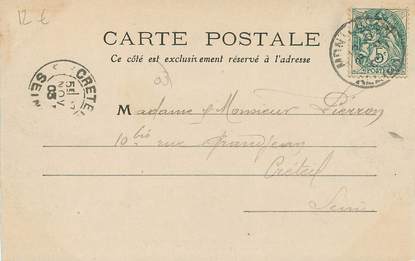 12 €
CARTE POSTALE
Ce côté est exclusivement réservé à l'adresse
5
POSTES
CRETEIL
NOV
03
SEINE
03
Madame & Monsieur Pierron
10 bis rue Grandjean
Créteil
Seine